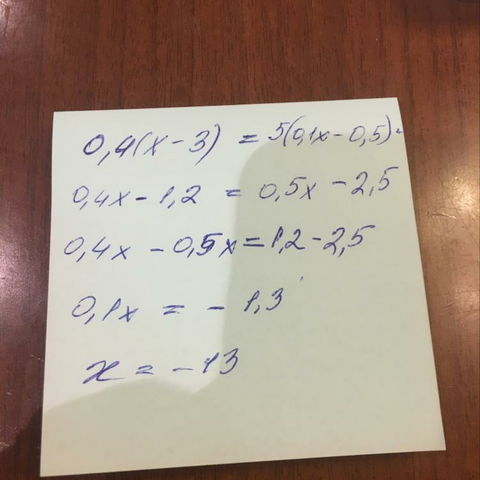 0,4(x-3) = 5(0,1x-0,5).
0,4x-1,2 = 0,5x-2,5
0,4x-0,5x=1,2-2,5
0,1x = -1,3
x = -13